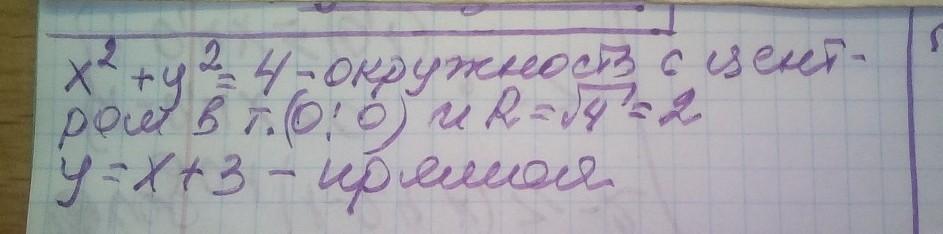 x² + y² = 4 - окружность с цент-
ром в т.(0; 0) и R = √4 = 2
y = x + 3 - прямая